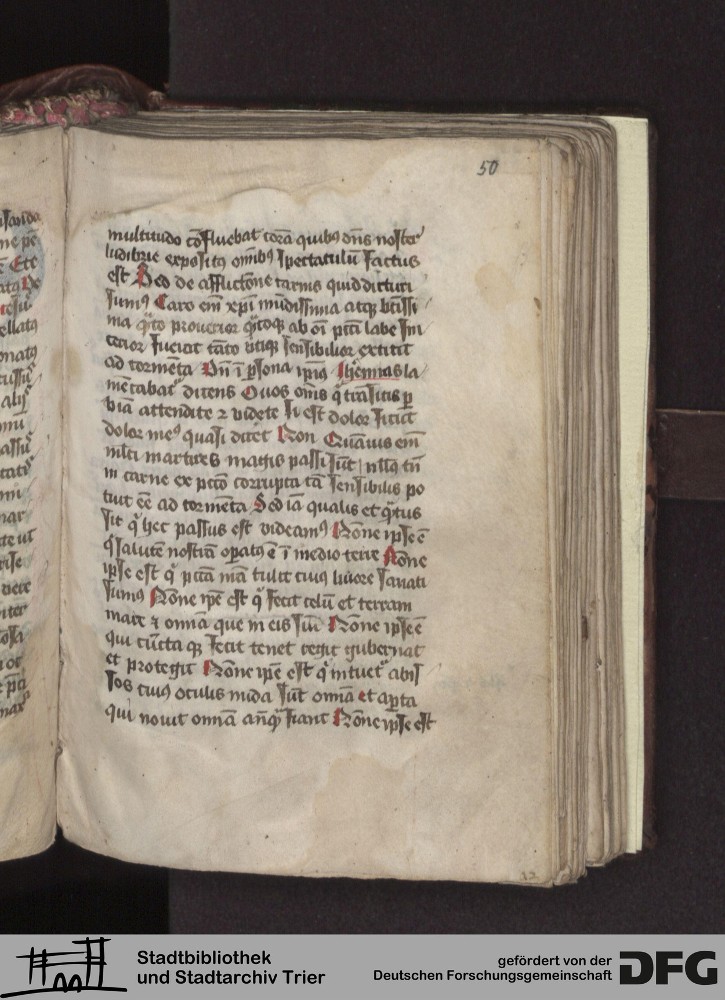 50
multitudo cōfluebat corā quibꝰ dn̄s noster
ludibrie expositꝰ omībꝰ spectaculū factus
est Sed de afflictōne carnis quid dicturi
sumꝰ Caro em̄ xp̄i mūdissima atqꝫ btissi
ma q̄to prouectior q̄toqꝫ ab oī pctī labe
cerior fuerat tāto vtiqꝫ sensibilior extitit
ad tormēta Vn̄ ī psona ipiꝰ Iheremias la
mētabat dicens O uos om̄s q̄ trāsitis p
viā attendite ⁊ videte si est dolor sicut
dolor meꝰ quasi dicet Non Quāuis em̄
ml̄ti martires magis passi sūt nllꝰ tn̄
in carne ex pctō corrupta tā sensibilis po
tuit eē ad tormēta Sed iā qualis et q̄tus
sit q̄ hec passus est videamꝰ Nōne ipse ē
q̄ salutē nostrā opatꝰ ē ī medio terre Nōne
ipse est q̄ pctā mītā tulit cuiꝰ liuore sanati
sumꝰ Nōne ipē est q̄ fecit celū et terram
mare ⁊ omnīa que in eis sūt Nōne ipse ē
qui cūcta qꝫ fecit tenet regit gubernat
et protegit Nōne ipē est q̄ intuet abis
sos cuiꝰ oculis nuda sūt omnīa et apta
qui nouit omnīa an̄qꝫ fiant Nōne ipse est
Stadtbibliothek
und Stadtarchiv Trier
gefördert von der
Deutschen Forschungsgemeinschaft
DFG